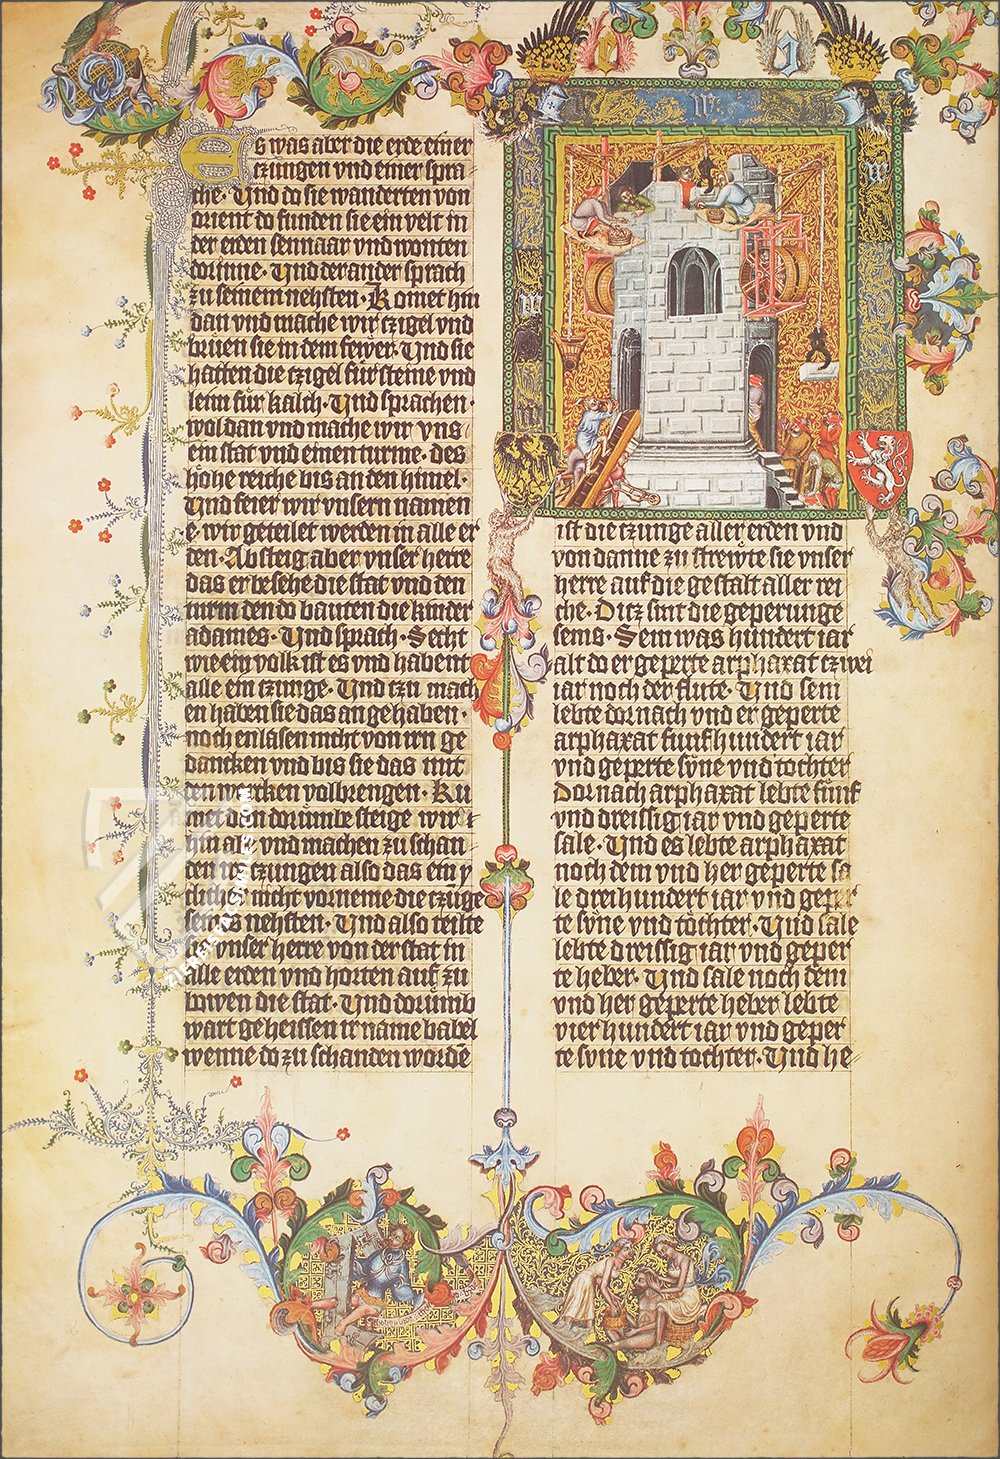 Es was aber die erde einer
czungen vnd einer spra
che· Vnd do sie wanderten von
orient do funden sie ein velt in
der erden sennaar vnd wonten
dorinne· Vnd der ander sprach
zu seinem nehsten· Komet hin
dan vnd mache wir czigel vnd
bruen sie in dem fewer· Vnd sie
hatten die czigel für steine vnd
leim für kalch· Vnd sprachen·
wol dan vnd mache wir vns
ein stat vnd einen turme· des
höhe reiche bis an den himel·
Vnd feier wir vnsern namen
e· wir geteilet werden in alle er
den· Absteig aber vnser herre
das er besehe die stat vnd den
turm den do bauten die kinder
adames· Vnd sprach· Secht
wie ein volk ist es vnd habent
alle ein czunge· Vnd czu mach
en haben sie das angehaben·
noch enlasen nicht von irn ge
dancken vnd bis sie das mit
den wercken volbrengen· Ku
met den dorumbe steige wir
hin abe vnd machen zu schan
den ire czungen also das ein y
clicher nicht vorneme die czüge
seines nehsten· Vnd also teilte
sie vnser herre von der stat in
alle erden vnd horten auf zu
bowen die stat· Vnd dorümb
wart geheissen ir name babel
wenne do zu schanden wordē
ist die czunge aller erden vnd
von danne zu strewte sie vnser
herre auf die gestalt aller rei
che· Dicz sint die geperunge
sems· Sem was hundert iar
alt do er geperte arphaxat czwei
iar noch der flute· Vnd sem
lebte dornach vnd er geperte
arphaxat funfhundert iar
vnd geperte süne vnd tochter
Dornach arphaxat lebte fünf
vnd dreissig iar vnd geperte
sale· Vnd es lebte arphaxat
noch dem vnd her geperte sa
le dreihundert iar vnd geper
te süne vnd töchter· Vnd sale
lebte dreissig iar vnd geper
te heber· Vnd sale noch dem
vnd her geperte heber lebte
vierhundert iar vnd geper
te süne vnd tochter· Vnd he